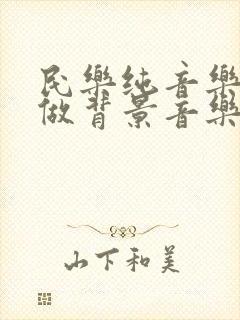 民樂纯音樂
做背景音樂
山下和美